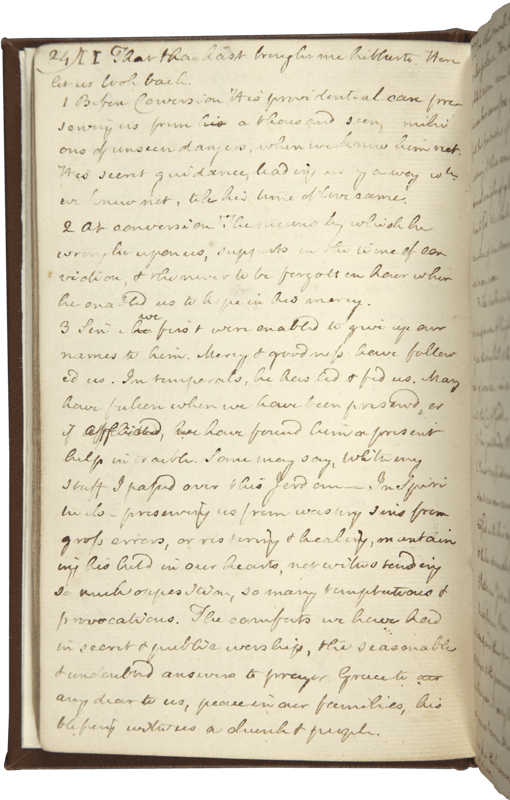 24 II That thou hast brought me hitherto. Here
let us look back
1 Before Conversion His providential care pre
serving us from a thousand seen, milli
ons of unseen dangers, when we knew him not.
His secret guidance, leading us by a way wh.
we knew not, till his time of love came.
2 At conversion The means by which he
wrought upon us, supports in the time of con
viction, & the never to be forgotten hour when
he enabled us to hope in his mercy.
3 Since we first were enabled to give up our
names to him. Mercy & goodness have follow
ed us. In temporals, he has led & fed us. Many
have fallen when we have been preserved, or
if afflicted, we have found him a present
help in trouble. Some may say, With my
staff I passed over this Jordan — In Spiri
tuals – preserving us from wasting sins from
gross errors, or restoring & healing, maintain
ing his hold in our hearts, notwithstanding
so much opposition, so many temptations &
provocations. The comforts we have had
in secret & public worship, the seasonable
& undoubted answers to prayer. Grace to
any dear to us, peace in our families, his
blessing with us a church & people.